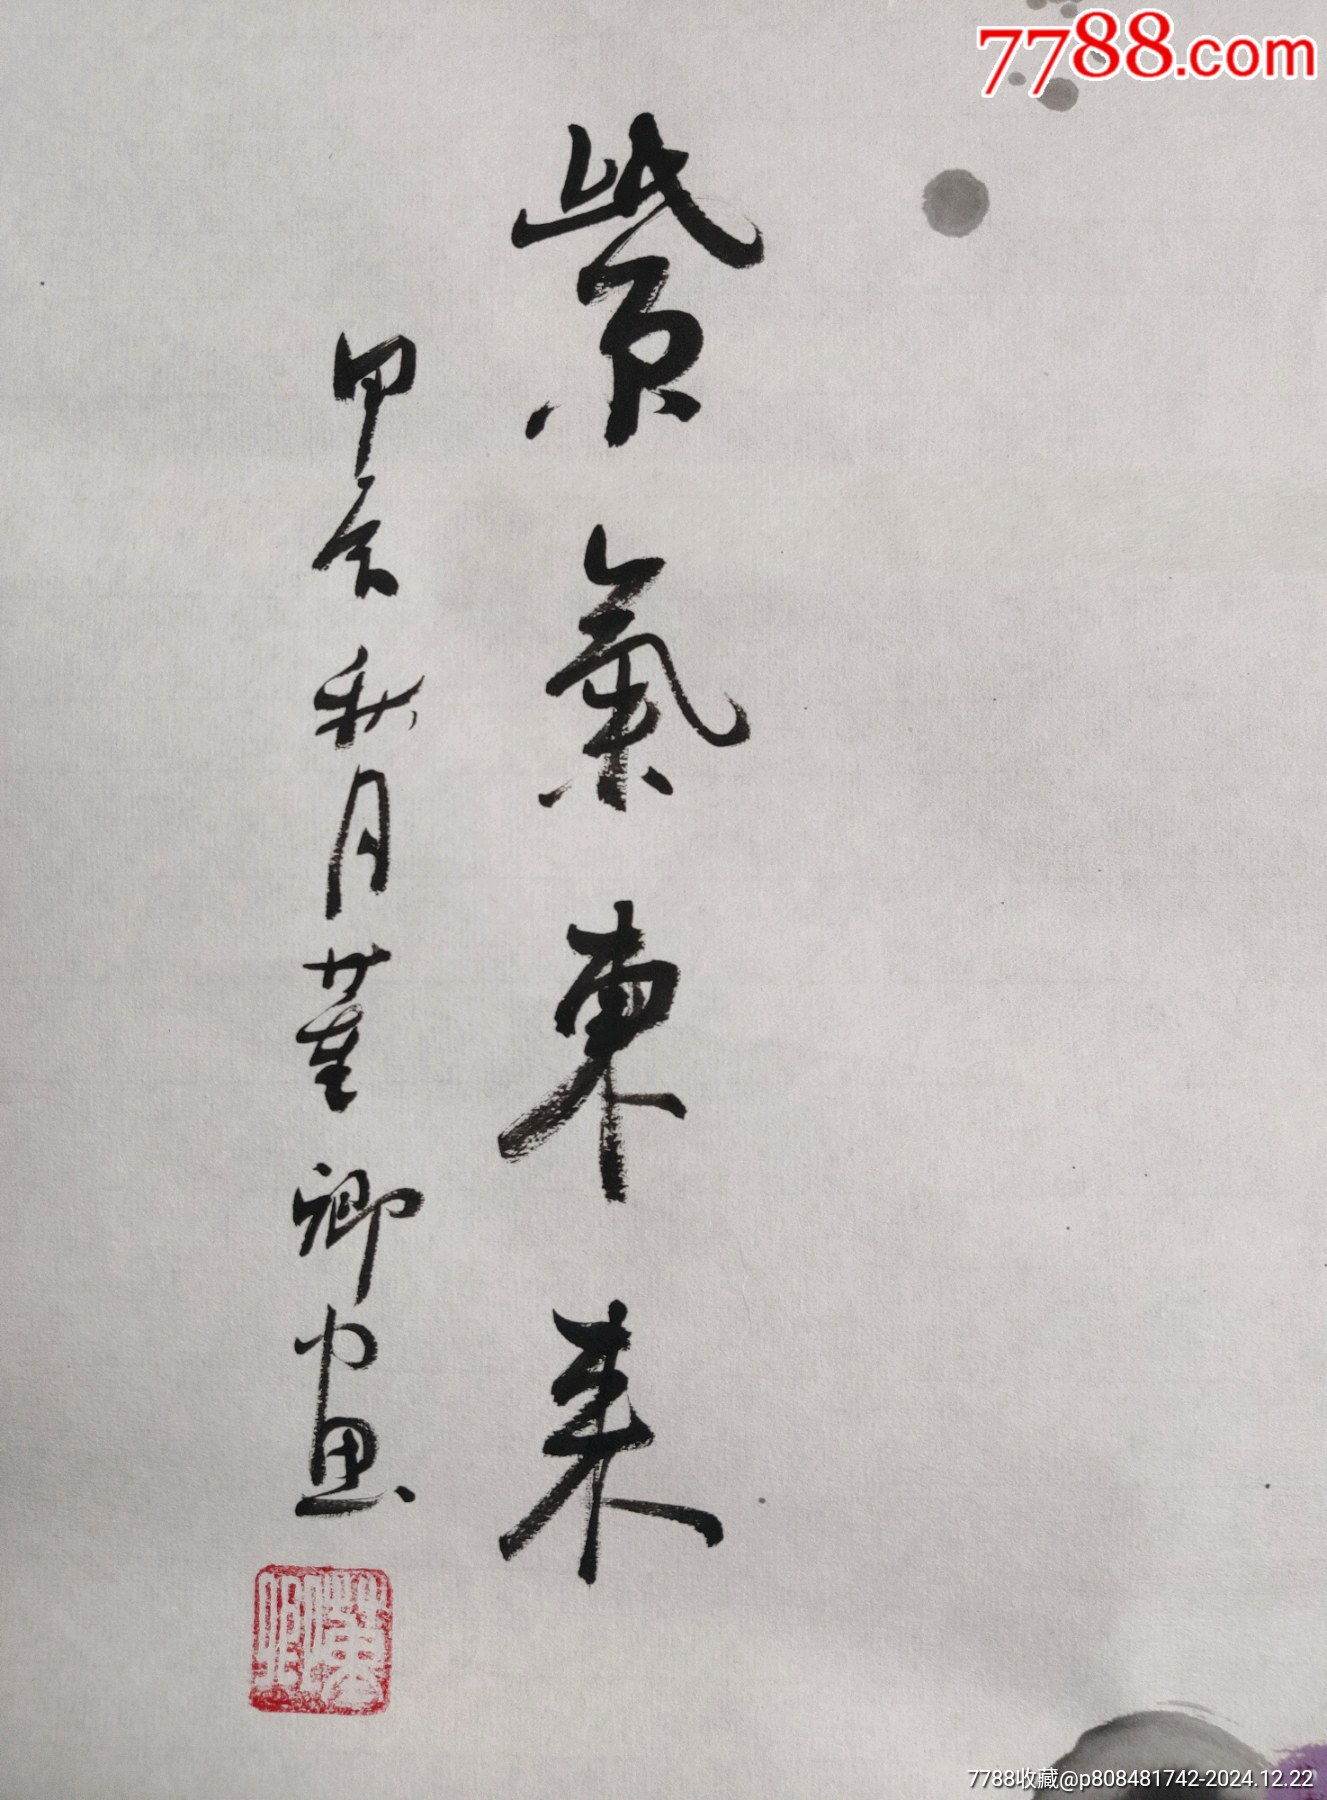 7788.com
紫氣東來
甲辰秋月董卿画
董卿
7788收藏@p808481742-2024.12.22